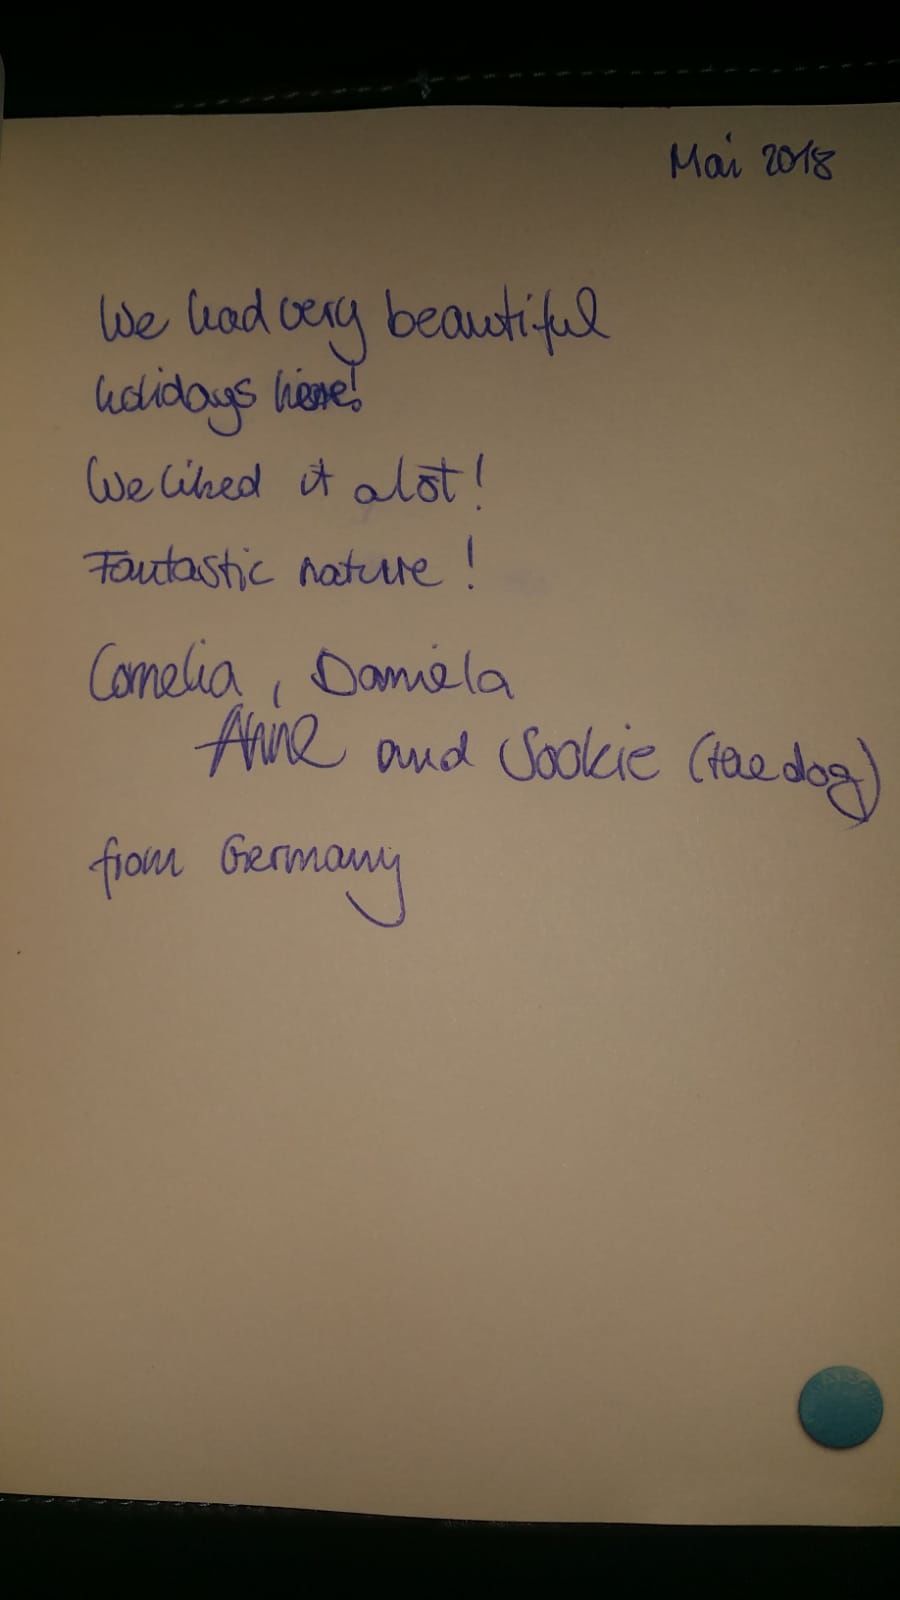 Mai 2018
We had very beautiful
holidays here!
We liked it a lot!
Fantastic nature!
Cornelia, Daniela
Anne and Sookie (the dog)
from Germany